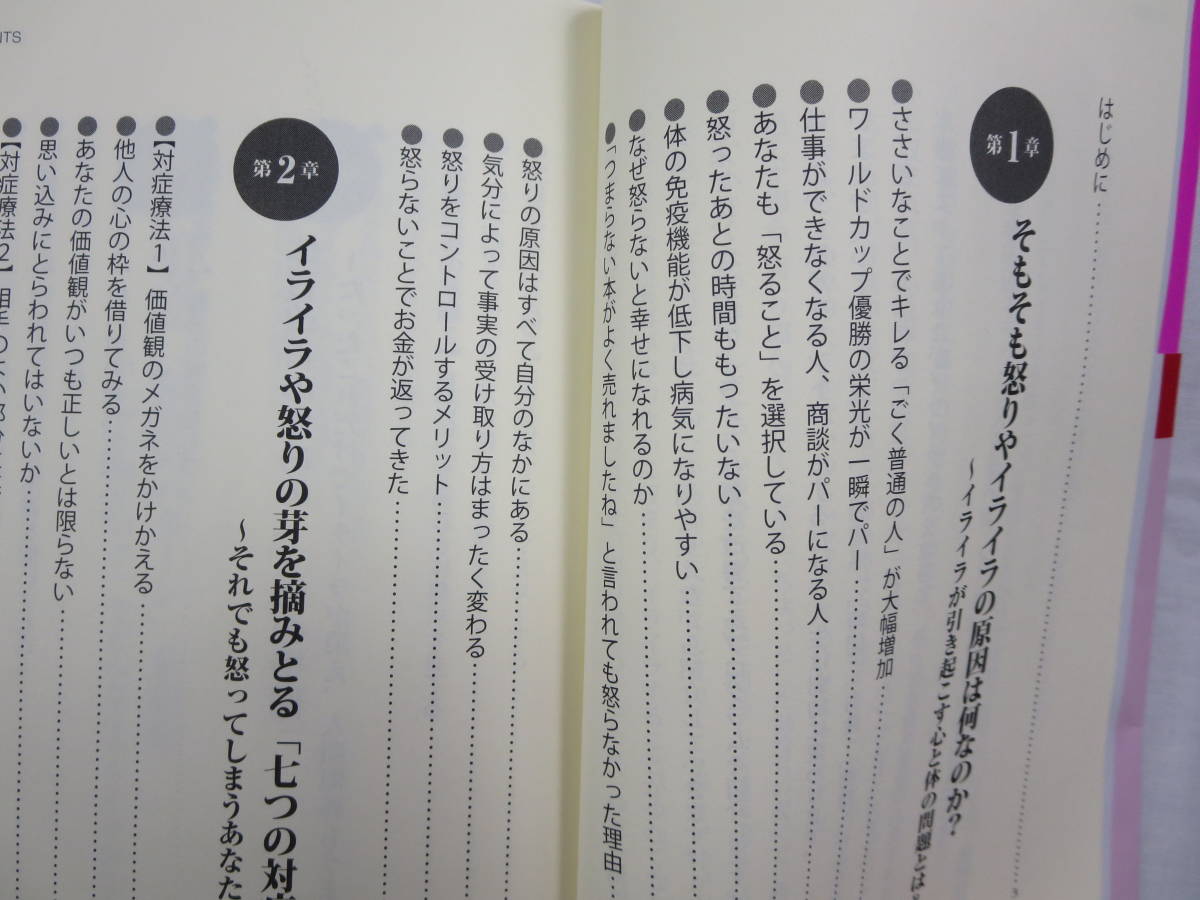 はじめに
第1章
そもそも怒りやイライラの原因は何なのか?
～イライラが引き起こす心と体の問題とは
●ささいなことでキレる「ごく普通の人」が大幅増加
●ワールドカップ優勝の栄光が一瞬でパー
●仕事ができなくなる人、商談がパーになる人
●あなたも「怒ること」を選択している
●怒ったあとの時間ももったいない
●体の免疫機能が低下し病気になりやすい
●なぜ怒らないと幸せになれるのか
●「つまらない本がよく売れましたね」と言われても怒らなかった理由
NTS
●怒りの原因はすべて自分のなかにある
●気分によって事実の受け取り方はまったく変わる
●怒りをコントロールするメリット
●怒らないことでお金が返ってきた
第2章
イライラや怒りの芽を摘みとる「七つの対
～それでも怒ってしまうあなた
●【対症療法1】価値観のメガネをかけかえる
●他人の心の枠を借りてみる
●あなたの価値観がいつも正しいとは限らない
●思い込みにとらわれてはいないか
●【対症療法2】